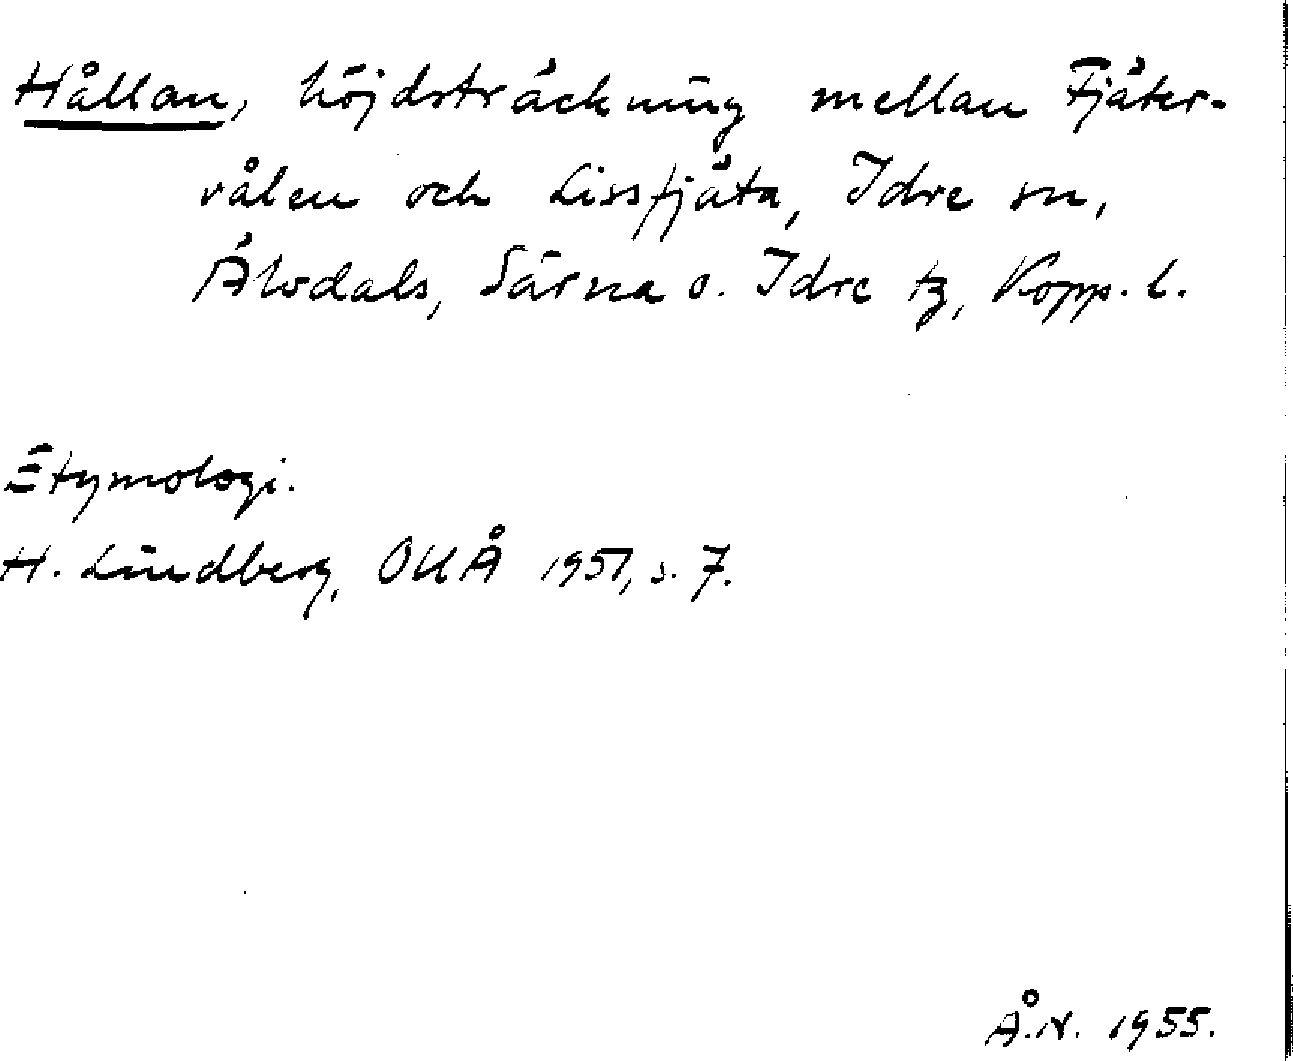 Hållan, höjdsträckning mellan Fjäter-
vålen och Lissfjäta, Idre sn,
Älvdals, Särna o. Idre tg, Kopp. l.
Etymologi.
H. Lundberg, OUÅ 1951, s. 7.
Å.N. 1955.